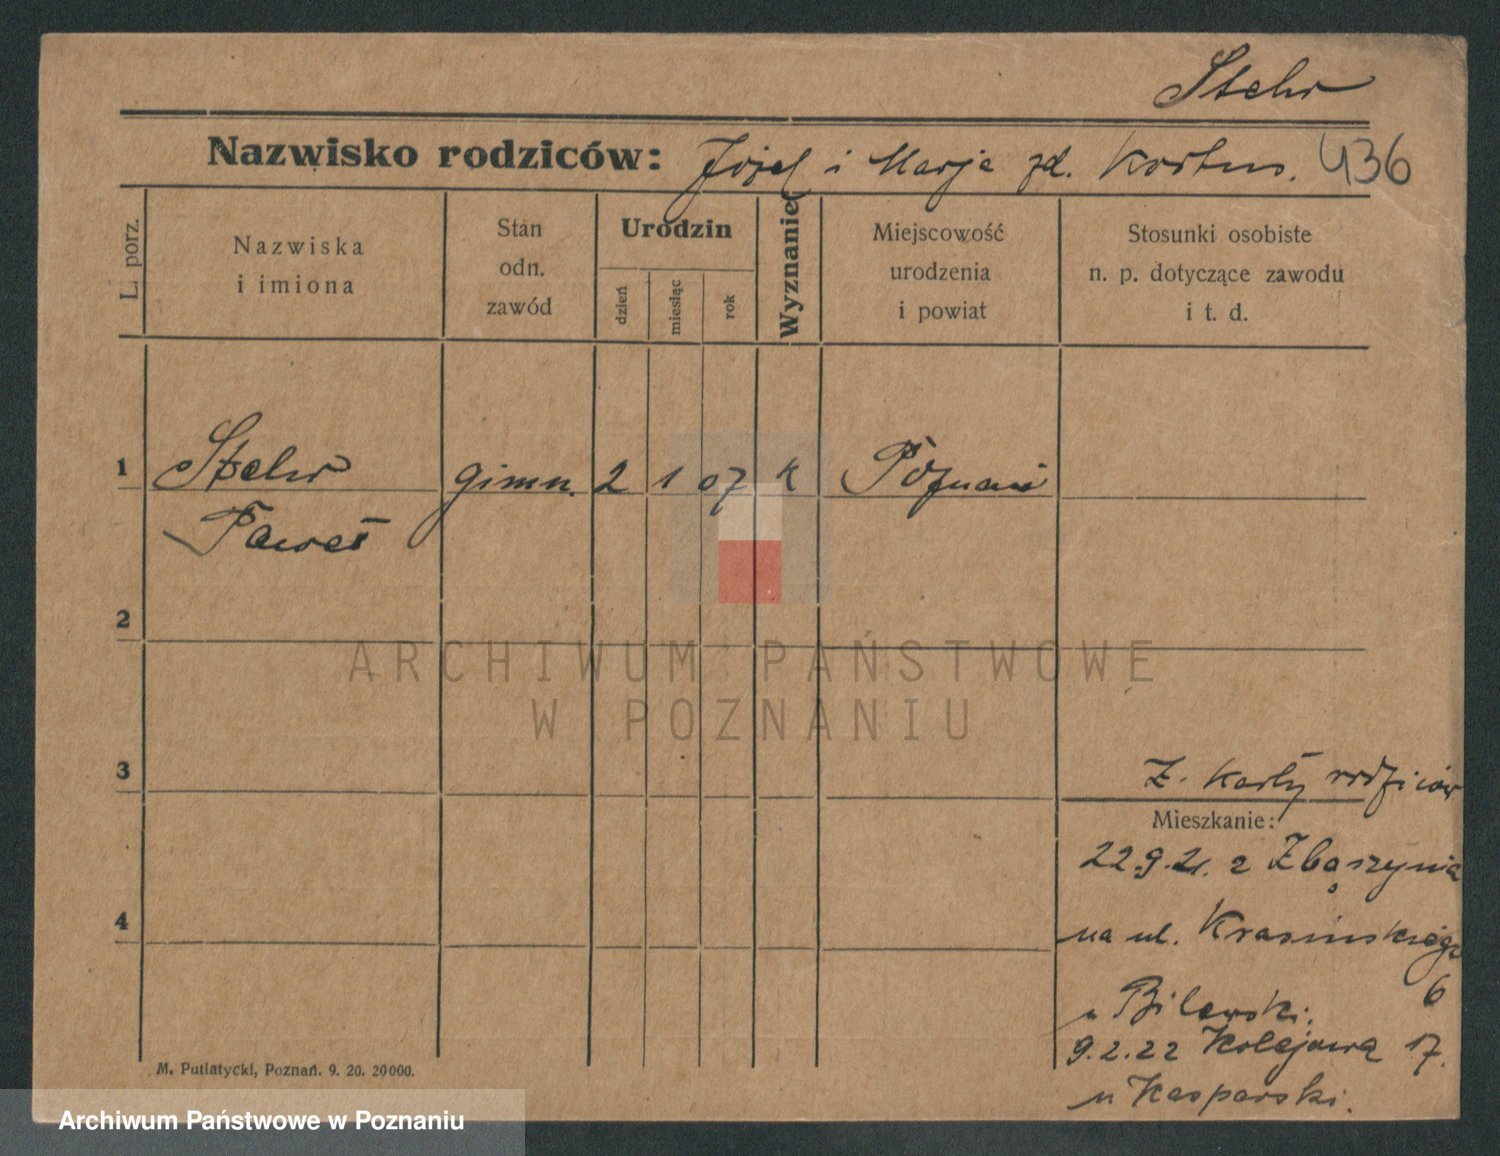 Stehr
Nazwisko rodziców: Józef i Marja zd. Kortus. 436
L. porz.
Nazwiska
i imiona
Stan
odn.
zawód
Urodzin
dzień
miesiąc
rok
Wyznanie
Miejscowość
urodzenia
i powiat
Stosunki osobiste
n. p. dotyczące zawodu
i t. d.
1 Stehr gimn. 2 1 07 k Poznań
Paweł
2
ARCHIWUM PAŃSTWOWE
W POZNANIU
3
Z. karty rodziców
Mieszkanie:
22.9.21. z Zbąszynia
4
na ul. Krasińskiego
6
u Bilewski.
9.2.22 Kolejowa 17.
u Kasparski.
M. Putiatycki, Poznań. 9. 20. 20000.
Archiwum Państwowe w Poznaniu